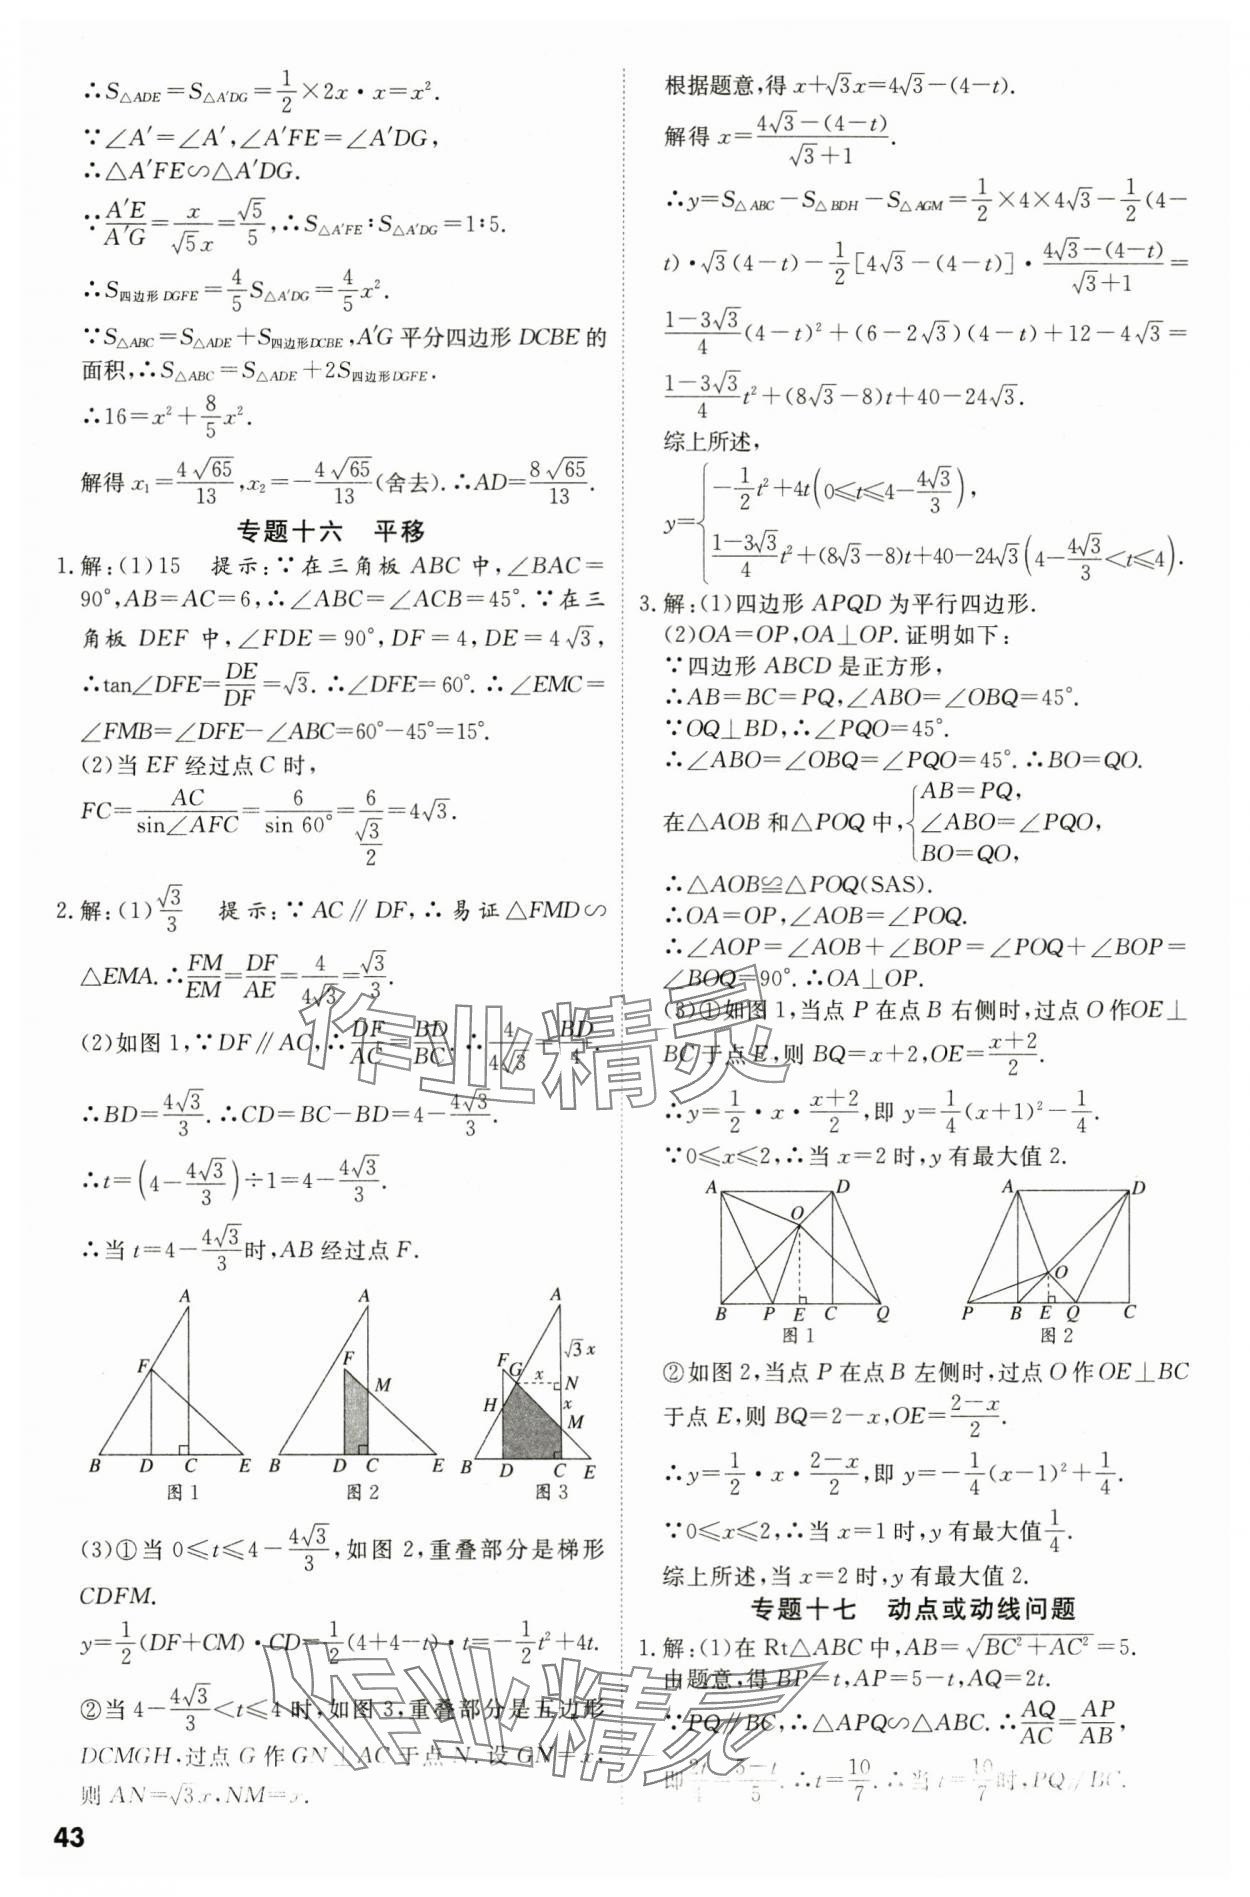 ∴S△ADE=S△A′DG=1/2×2x·x=x².
∵∠A′=∠A′,∠A′FE=∠A′DG,
∴△A′FE∽△A′DG.
∵A′E/A′G=x/(√5x)=√5/5,∴S△A′FE∶S△A′DG=1∶5.
∴S四边形DGFE=4/5S△A′DG=4/5x².
∵S△ABC=S△ADE+S四边形DCBE,A′G平分四边形DCBE的
面积,∴S△ABC=S△ADE+2S四边形DGFE.
∴16=x²+8/5x².
解得x₁=4√65/13,x₂=-4√65/13(舍去).∴AD=8√65/13.
专题十六 平移
1.解:(1)15 提示:∵在三角板ABC中,∠BAC=
90°,AB=AC=6,∴∠ABC=∠ACB=45°.∵在三
角板DEF中,∠FDE=90°,DF=4,DE=4√3,
∴tan∠DFE=DE/DF=√3.∴∠DFE=60°.∴∠EMC=
∠FMB=∠DFE-∠ABC=60°-45°=15°.
(2)当EF经过点C时,
FC=AC/sin∠AFC=6/sin 60°=6/(√3/2)=4√3.
2.解:(1)√3/3 提示:∵AC∥DF,∴易证△FMD∽
△EMA.∴FM/EM=DF/AE=4/(4√3)=√3/3.
(2)如图1,∵DF∥AC,∴DF/AC=BD/BC.∴4/(4√3)=BD/4.
∴BD=4√3/3.∴CD=BC-BD=4-4√3/3.
∴t=(4-4√3/3)÷1=4-4√3/3.
∴当t=4-4√3/3时,AB经过点F.
A F B D C E 图1
A F M B D C E 图2
A √3x F G x N H x M B D C E 图3
(3)①当0≤t≤4-4√3/3,如图2,重叠部分是梯形
CDFM.
y=1/2(DF+CM)·CD=1/2(4+4-t)·t=-1/2t²+4t.
②当4-4√3/3<t≤4时,如图3,重叠部分是五边形
DCMGH,过点G作GN⊥AC于点N.设GN=x,
则AN=√3x,NM=x.
43
根据题意,得x+√3x=4√3-(4-t).
解得x=(4√3-(4-t))/(√3+1).
∴y=S△ABC-S△BDH-S△AGM=1/2×4×4√3-1/2(4-
t)·√3(4-t)-1/2[4√3-(4-t)]·(4√3-(4-t))/(√3+1)=
(1-3√3)/4(4-t)²+(6-2√3)(4-t)+12-4√3=
(1-3√3)/4t²+(8√3-8)t+40-24√3.
综上所述,
y={-1/2t²+4t(0≤t≤4-4√3/3),
(1-3√3)/4t²+(8√3-8)t+40-24√3(4-4√3/3<t≤4).
3.解:(1)四边形APQD为平行四边形.
(2)OA=OP,OA⊥OP.证明如下:
∵四边形ABCD是正方形,
∴AB=BC=PQ,∠ABO=∠OBQ=45°.
∵OQ⊥BD,∴∠PQO=45°.
∴∠ABO=∠OBQ=∠PQO=45°.∴BO=QO.
在△AOB和△POQ中,{AB=PQ,
∠ABO=∠PQO,
BO=QO,
∴△AOB≌△POQ(SAS).
∴OA=OP,∠AOB=∠POQ.
∴∠AOP=∠AOB+∠BOP=∠POQ+∠BOP=
∠BOQ=90°.∴OA⊥OP.
(3)①如图1,当点P在点B右侧时,过点O作OE⊥
BC于点E,则BQ=x+2,OE=(x+2)/2.
∴y=1/2·x·(x+2)/2,即y=1/4(x+1)²-1/4.
∵0≤x≤2,∴当x=2时,y有最大值2.
A D O B P E C Q 图1
A D O P B E Q C 图2
②如图2,当点P在点B左侧时,过点O作OE⊥BC
于点E,则BQ=2-x,OE=(2-x)/2.
∴y=1/2·x·(2-x)/2,即y=-1/4(x-1)²+1/4.
∵0≤x≤2,∴当x=1时,y有最大值1/4.
综上所述,当x=2时,y有最大值2.
专题十七 动点或动线问题
1.解:(1)在Rt△ABC中,AB=√(BC²+AC²)=5.
由题意,得BP=t,AP=5-t,AQ=2t.
∵PQ∥BC,∴△APQ∽△ABC.∴AQ/AC=AP/AB,
即2t/4=(5-t)/5.∴t=10/7.∴当t=10/7时,PQ∥BC.
作业精灵
作业精灵